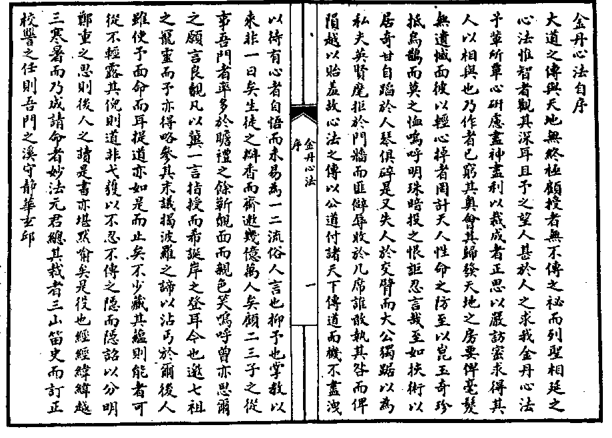 金丹心法自序
大道之傳與天地無終極顧授者無不傳之祕而列聖相延之
心法惟智者觀其深耳且予之望人甚於人之求我金丹心法
予輩所畢心研慮盡神盡利以裁成者正思以嚴訪密求得其
人以相與也乃作者已窮其奧會其歸發天地之房要俾毫髮
無遺憾而彼以輕心掉者罔計天人性命之防至以崑玉奇珍
抵烏鵲而莫之恤嗚呼明珠暗投之恨詎忍言哉至如挾術以
居奇甘自蹈於人琴俱碎是又失人於交臂而大公獨跖以為
私夫英賢麾拒於門牆而匪僻辱收於几席誰敢執其咎而俾
隕越以貽羞故心法之傳以公道付諸天下傳道而機不盡洩
金丹心法
序
一
以待有心者自悟而未易為一二流俗人言也抑予也掌教以
來非一日矣生徒之辦香而齊遬幾億萬人矣顧二三子之從
事吾門者率多於瞻禮之餘靳覩面而親色笑嗚呼曾亦思爾
之願言良覿凡以冀一言指授而希誕岸之登耳今也邀七祖
之寵靈而予亦得略參其末議揭波羅之諦以沾丐於爾後人
雖使予面命而耳提道亦如是而止矣不少藏其蘊則能者可
從不輕露其倪則道非弋獲以不忍不傳之隱而隱詒以分明
鄭重之思則後人之讀是書亦堪默喻矣是役也經經緯緯越
三寒暑而乃成請命者妙法元君總其裁者三山笛史而訂正
校讐之任則吾門之溪守靜華玄邱